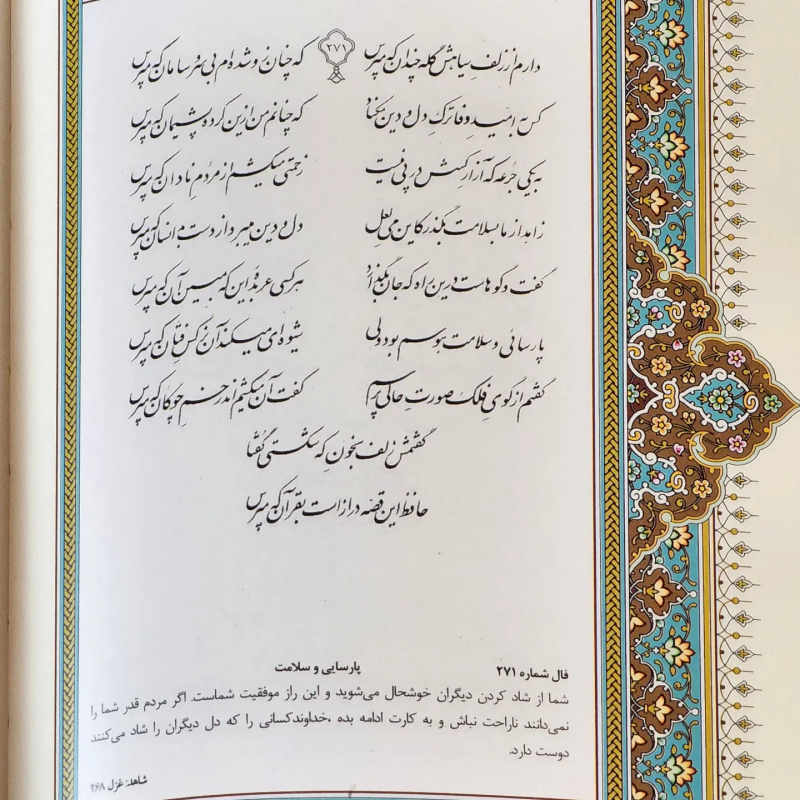 ۲۷۱
دارم از زلف سیاهش گله چندان که مپرس که چنان زو شده‌ام بی سر و سامان که مپرس
کس به امید وفا ترک دل و دین مکناد که چنانم من ازین کرده پشیمان که مپرس
به یکی جرعه که آزار کسش در پی نیست زحمتی میکشم از مردم نادان که مپرس
زاهد از ما بسلامت بگذر کاین می لعل دل و دین میبرد از دست بدانسان که مپرس
گفت و گوهاست درین راه که جان بگدازد هر کسی عربده‌ای این که مبین آن که مپرس
پارسائی و سلامت هوسم بود ولی شیوه‌ای میکند آن نرگس فتان که مپرس
گفتم از گوی فلک صورت حالی پرسم گفت آن میکشم اندر خم چوگان که مپرس
گفتمش زلف بخون که شکستی گفتا
حافظ این قصه دراز است بقرآن که مپرس
فال شماره ۲۷۱ پارسایی و سلامت
شما از شاد کردن دیگران خوشحال می‌شوید و این راز موفقیت شماست. اگر مردم قدر شما را
نمی‌دانند ناراحت نباش و به کارت ادامه بده ،خداوندکسانی را که دل دیگران را شاد می‌کنند
دوست دارد.
شاهد: غزل ۲۶۸